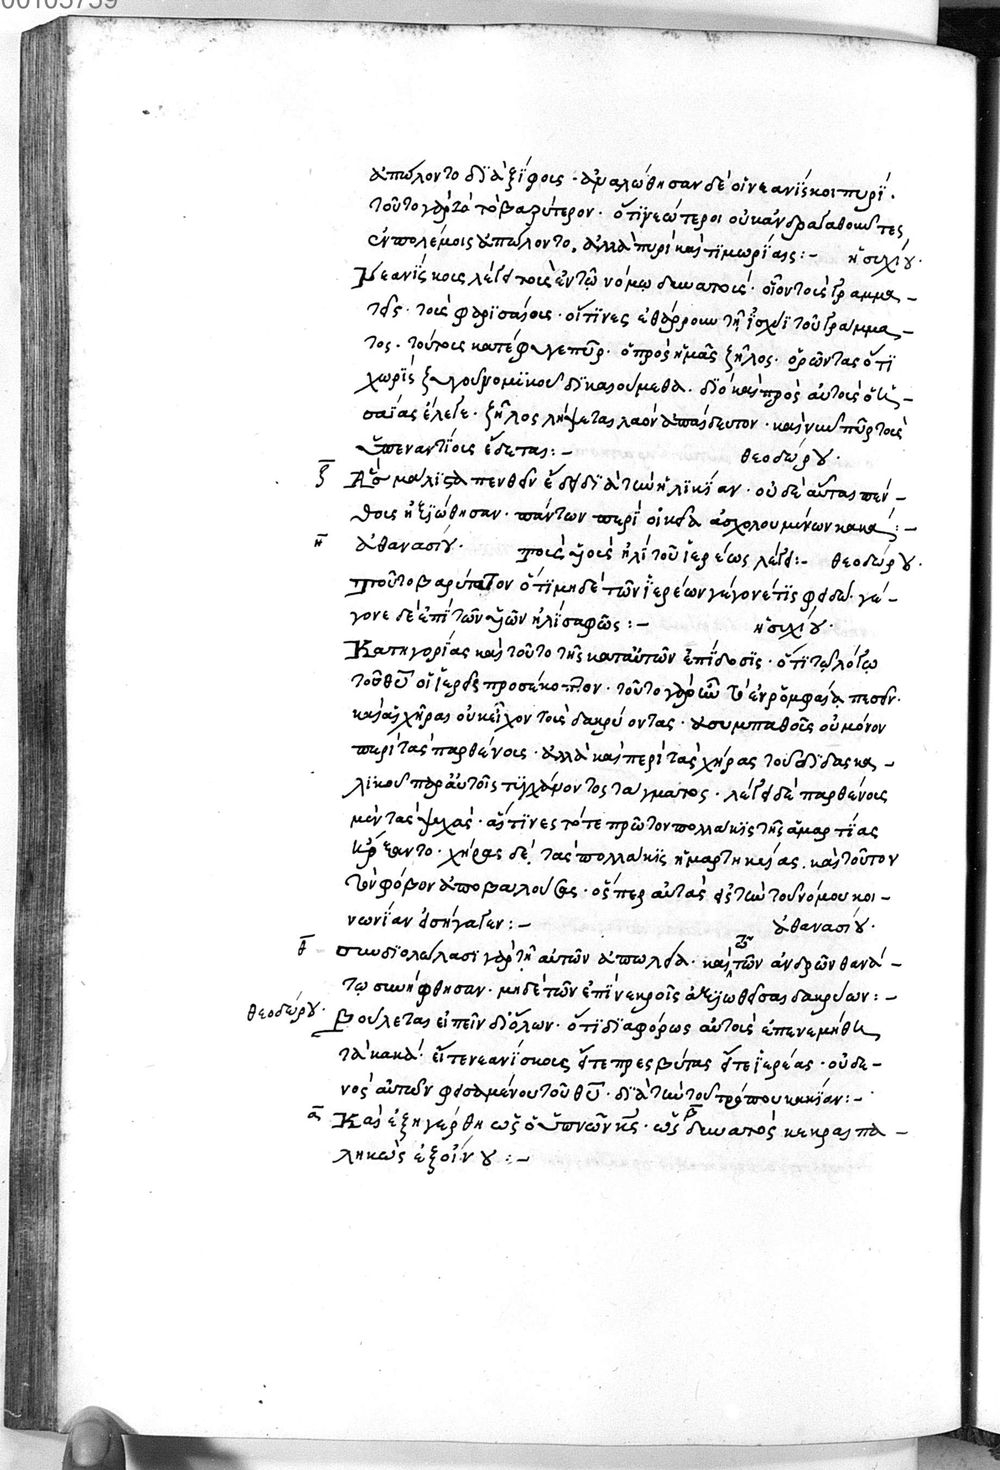 00105759
ἀπώλοντο διὰ ξίφοις · ἀναλώθησαν δὲ οἱ νεανίσκοι πυρί ·
τοῦτο γὰρ τὸ βαρύτερον · ὅτι νεώτεροι οὐκ ἀνδραγαθοῦντες
ἐν πολέμοις ἀπώλοντο, ἀλλὰ πυρὶ καὶ τιμωρίαις :- ἡσιχίου ·
Νεανίσκοις λέγει τοῖς ἐν τῶ νόμω δυνατοῖς · οἷον τοῖς γραμμα-
τεῦς · τοῖς φαρισαίοις · οἵτινες ἐθάρρουν τῆ ἰσχύϊ τοῦ γράμμα-
τος · τούτοις κατέφαγε πῦρ · ὁ πρὸς ἡμᾶς ζῆλος · ὁρῶντας ὅτι
χωρὶς ζυγοῦ νομικοῦ δικαιούμεθα · διὸ καὶ πρὸς αὐτοὺς ὁ ἡ-
σαΐας ἔλεγε · ζῆλος λήψεται λαὸν ἀπαίδευτον · καὶ νῦν πῦρ τοὺς
ὑπεναντίους ἔδεται :- θεοδώρου ·
ξ Ἃς μάλιστα πενθεῖν ἔδει διὰ τὴν ἡλικίαν · οὐδὲ αὗται πέν-
θοις ἠξιώθησαν · πάντων περὶ οἰκεῖα ἀσχολουμένων κακά :-
η ἀθανασίου · τοὺς υἱοὺς ἠλὶ τοῦ ἱερέως λέγει :- θεοδώρου ·
Τοῦτο βαρύτατον ὅτι μηδὲ τῶν ἱερέων γέγονέ τις φειδώ · γέ-
γονε δὲ ἐπὶ τῶν υἱῶν ἠλὶ σαφῶς :- ἡσιχίου ·
Κατηγορίας καὶ τοῦτο τῆς κατ' αὐτῶν ἐπίδοσις · ὅτι τῶ λόγω
τοῦ θυ οἱ ἱερεῖς προσέκοπτον · τοῦτο γὰρ ἦν τὸ ἐν ρομφαία πεσεῖν ·
καὶ αἱ χῆραι οὐκ εἶχον τοὺς δακρύοντας · ἀσυμπαθεῖς οὐ μόνον
περὶ τὰς παρθένους · ἀλλὰ καὶ περὶ τὰς χήρας τοῦ διδασκα-
λικοῦ παρ' αὐτοῖς τυγχάνοντος τάγματος · λέγει δὲ παρθένους
μὲν τὰς ψυχάς · αἵτινες τότε πρῶτον πολλάκις τῆς ἁμαρτίας
ἤρξαντο · χήρας δὲ, τὰς πολλάκις ἡμαρτηκυίας · καὶ τοῦτον
τὸν φόβον ἀποβαλούσας · ὅσπερ αὐτὰς εἰς τὴν τοῦ νόμου κοι-
νωνίαν εἰσήγαγεν :- ἀθανασίου ·
θ συνδιολώλασι γὰρ τῆ αὐτῶν ἀπωλεία · καὶ τῶν ἀνδρῶν θανά-
τω συνήφθησαν · μηδὲ τῶν ἐπὶ νεκροῖς ἀξιωθεῖσαι δακρύων :-
θεοδώρου · Βούλεται εἰπεῖν δι' ὅλων · ὅτι διαφόρως αὐτοῖς ἐπενεμήθη
τὰ κακά · εἴτε νεανίσκοις εἴτε πρεσβύταις εἴτε ἱερέας · οὐδε-
νὸς αὐτῶν φεισαμένου τοῦ θυ · διὰ τὴν τοῦ τρόπου κακίαν :-
α Καὶ ἐξηγέρθη ὡς ὁ ὑπνῶν κς · ὡς δυνατὸς κεκραιπα-
ληκὼς ἐξ οἴνου :-